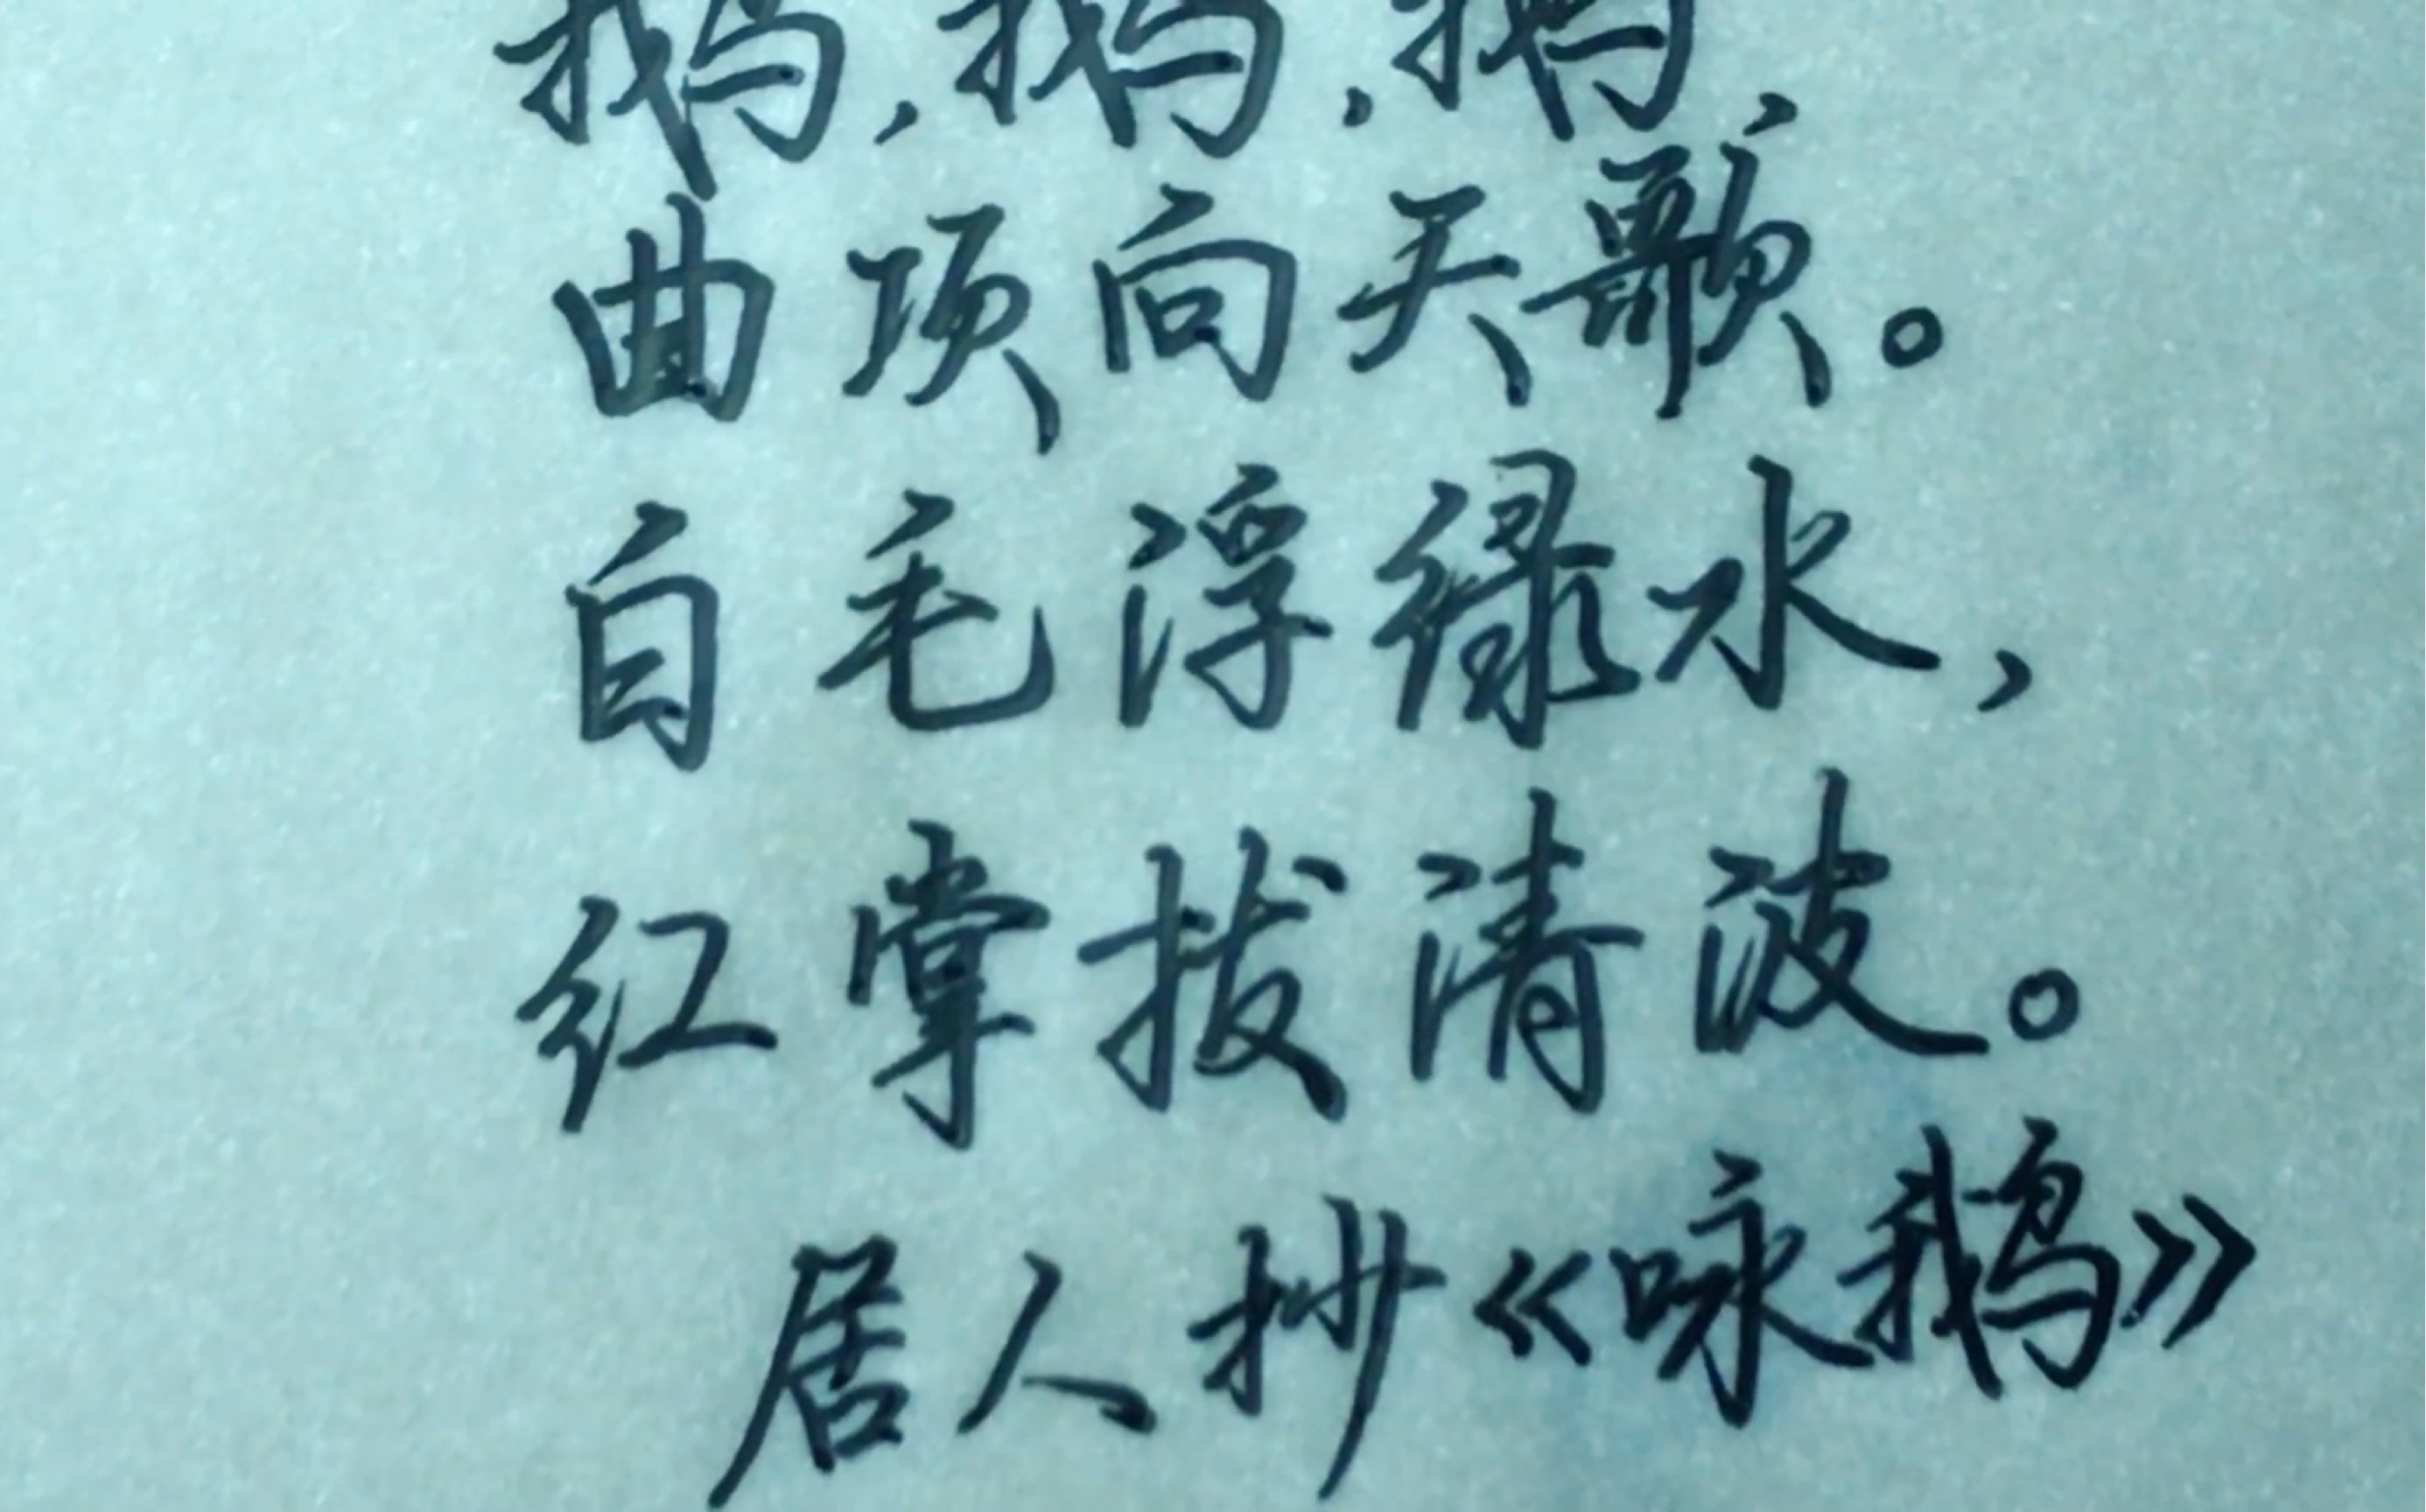 鹅,鹅,鹅,
曲项向天歌。
白毛浮绿水,
红掌拔清波。
居人抄《咏鹅》